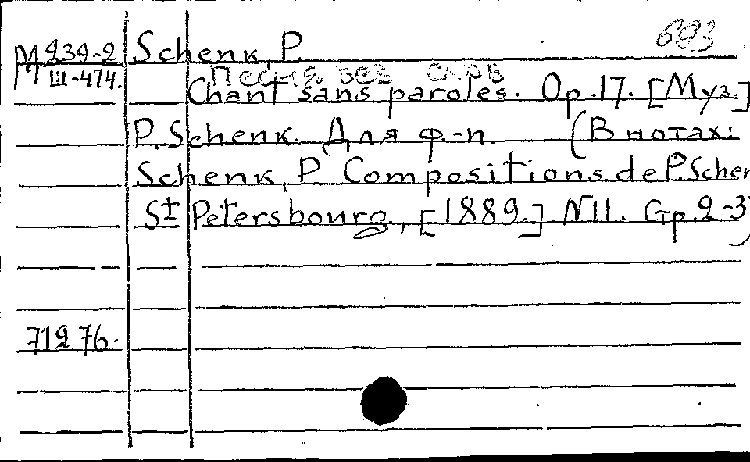 683
М 239-2 Schenk, P.
Ш-474. Песня без слов
Chant sans paroles. Op.17. [Муз.]
P. Schenk. Для ф-п. (В нотах:
Schenk, P. Compositions de P. Schen
St Petersbourg, [1889.] N11. Cтр. 2-3)
71276.